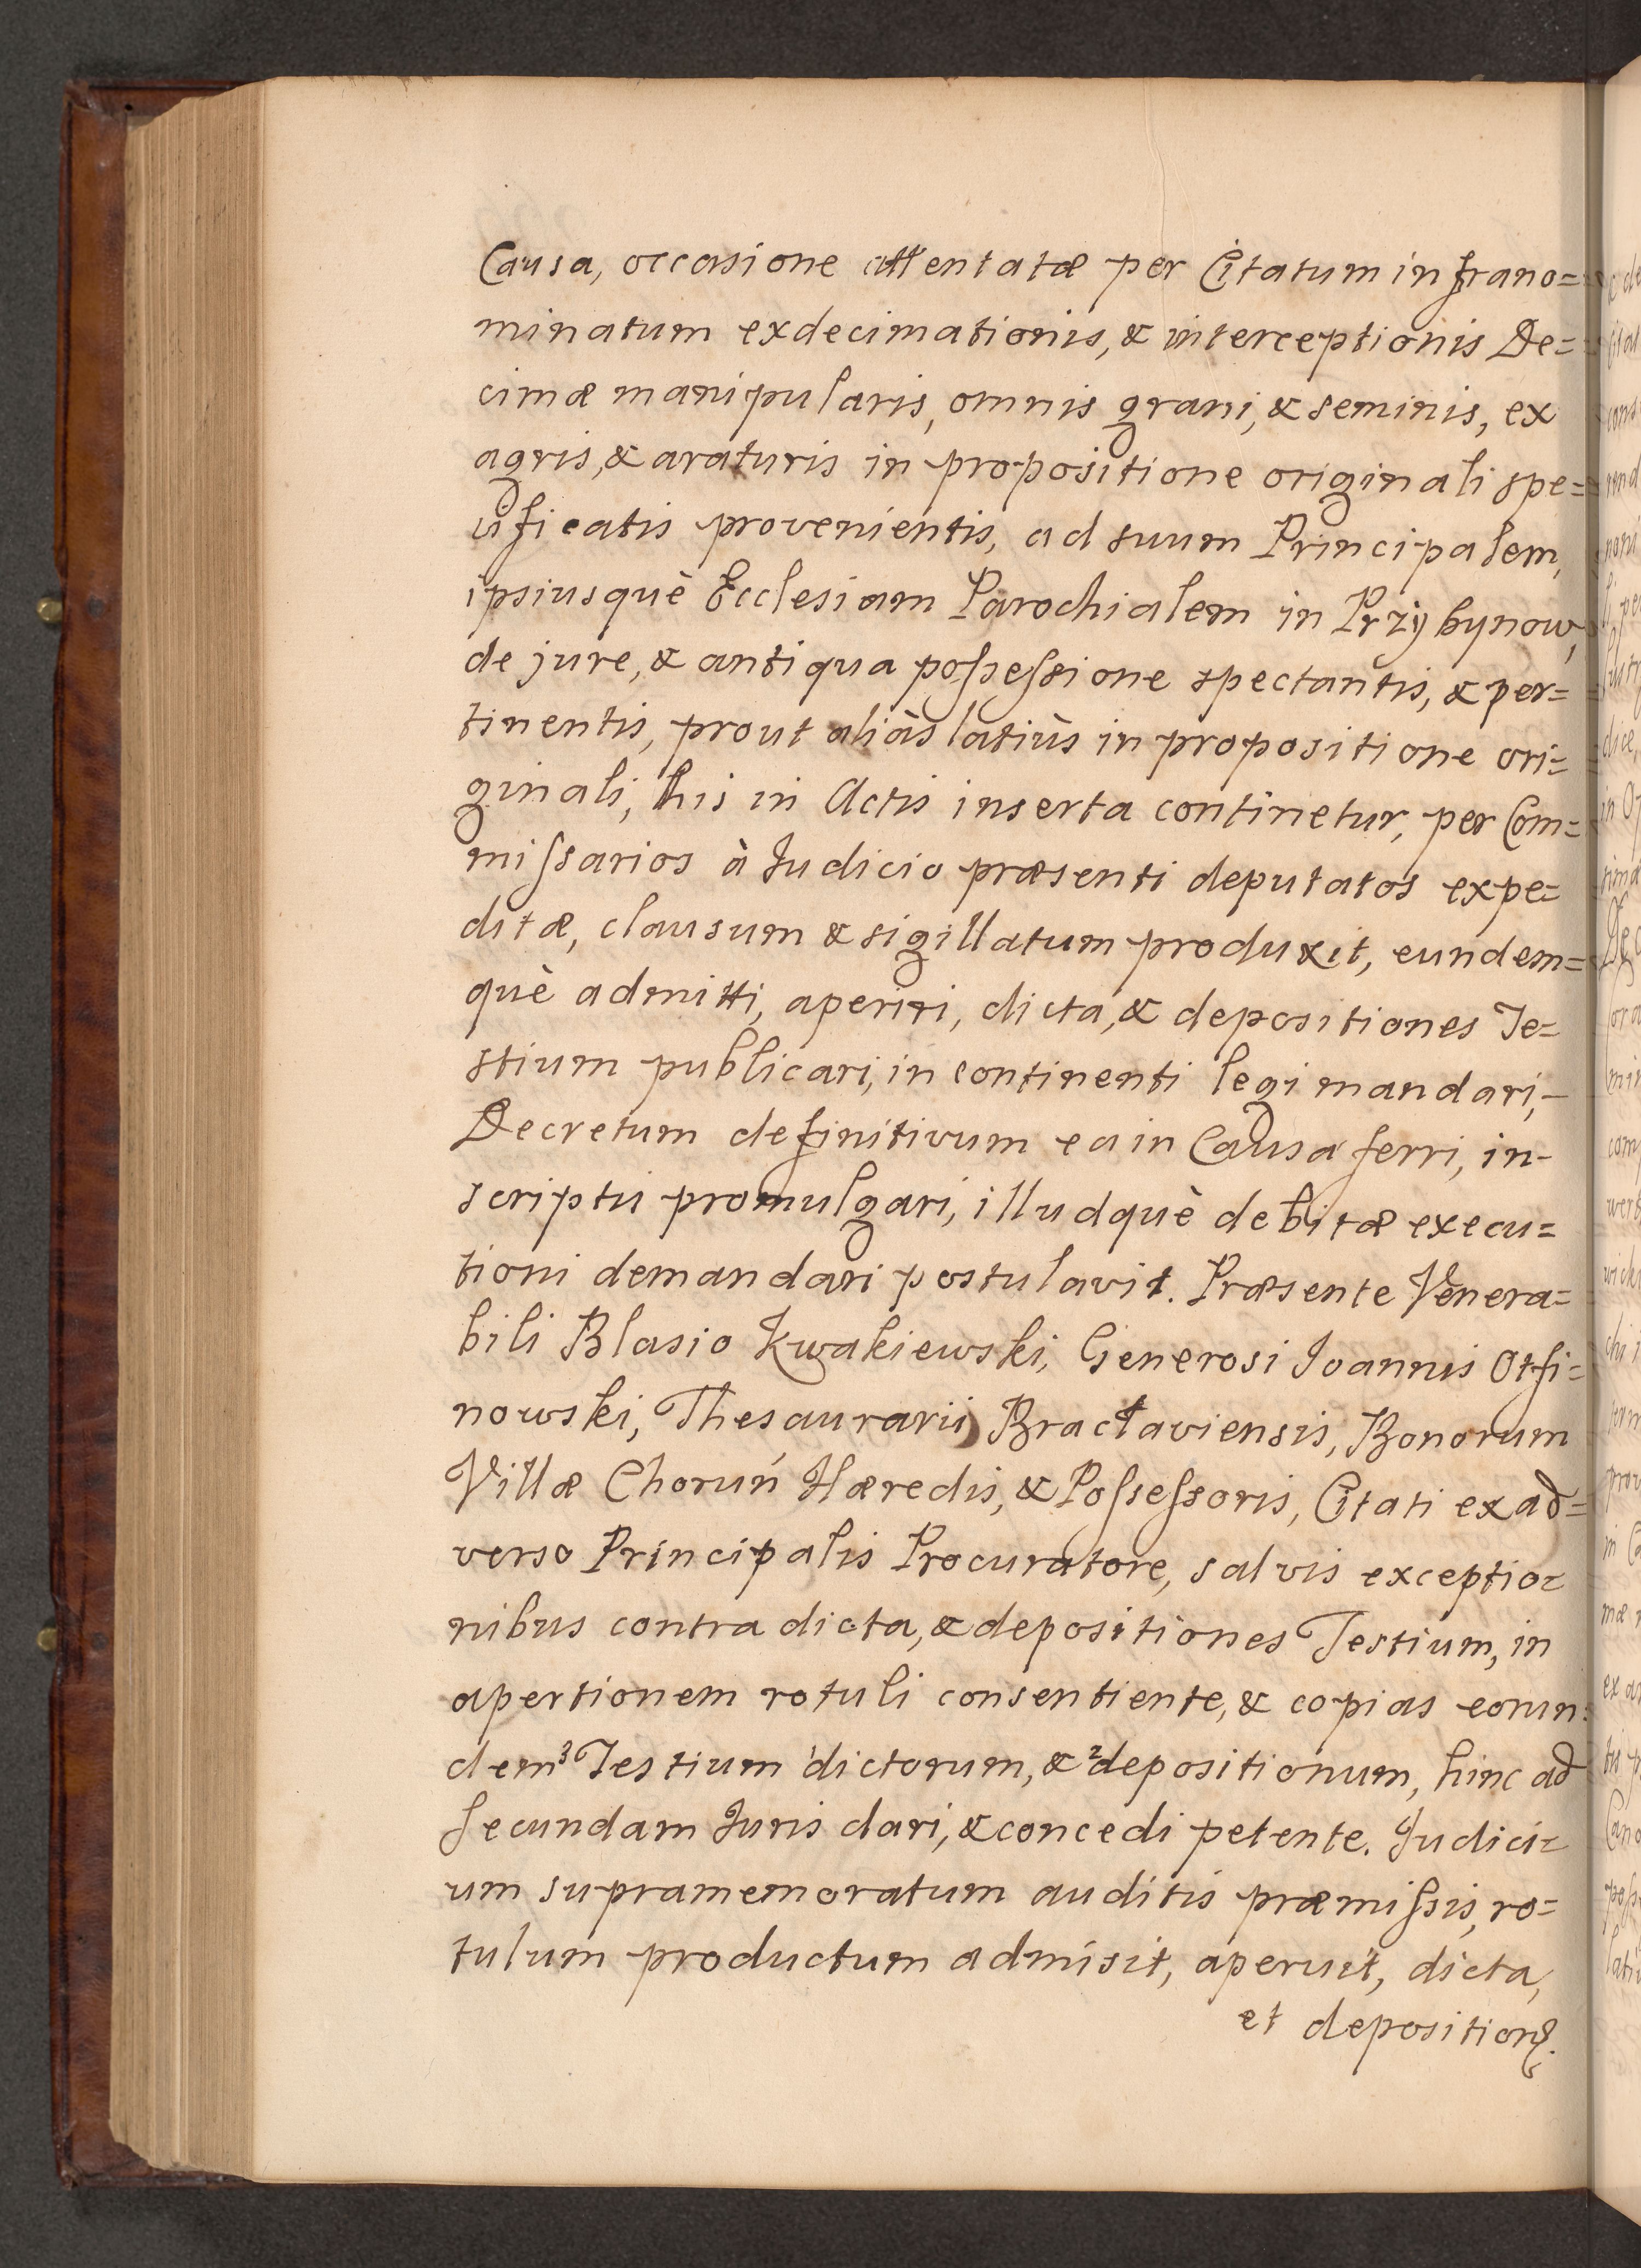 Causa, occasione attentatæ per Citatum infrano=
minatum exdecimationis, & interceptionis De=
cimæ manipularis, omnis grani, & seminis, ex
agris, & araturis in propositione originali spe=
cificatis provenientis, ad suum Principalem,
ipsiusquè Ecclesiam Parochialem in Przybynow,
de jure, & antiqua poſseſsione spectantis, & per=
tinentis, prout aliàs latiùs in propositione ori=
ginali, his in Actis inserta continetur, per Com=
miſsarios à Iudicio præsenti deputatos expe=
ditæ, clausum & sigillatum produxit, eundem=
què admitti, aperiri, dicta, & depositiones Te=
stium publicari, in continenti legi mandari,-
Decretum definitivum ea in Causa ferri, in-
scriptis promulgari, illudquè debitæ execu=
tioni demandari postulavit. Præsente Venera=
bili Blasio Kwakiewski, Generosi Ioannis Otfi=
nowski, Thesaurarii Bractaviensis, Bonorum
Villæ Choruń Hæredis, & Poſseſsoris, Citati ex ad=
verso Principalis Procuratore, salvis exceptio=
nibus contra dicta, & depositiones Testium, in
apertionem rotuli consentiente, & copias eorun=
dem ³Testium ¹dictorum, & ²depositionum, hinc ad
ſecundam Iuris dari, & concedi petente. Iudici=
um supramemoratum auditis præmiſsis, ro=
tulum productum admisit, aperuit, dicta,
et depositiones.